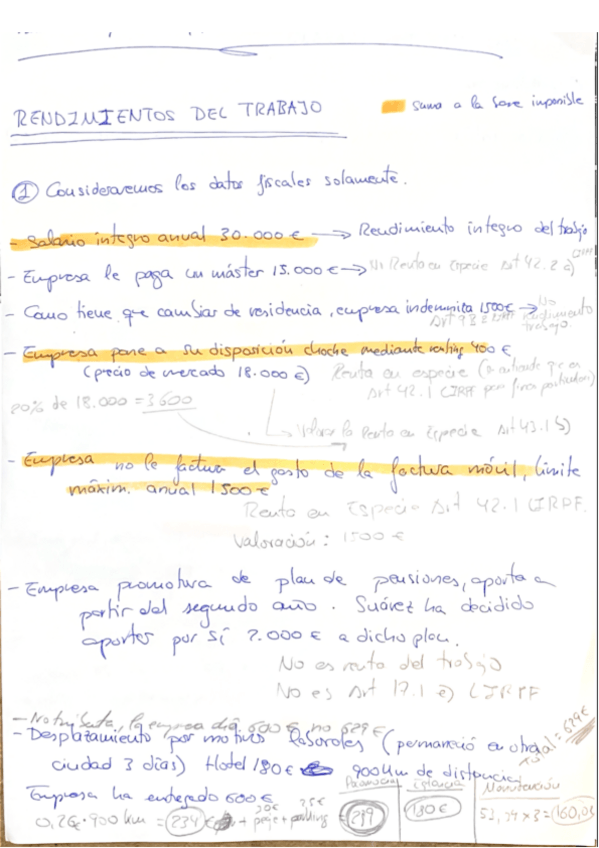 RENDIMIENTOS DEL TRABAJO
Suma a la base imponible
① Consideraremos los datos fiscales solamente.
- Salario integro anual 30.000 € → Rendimiento integro del trabajo
- Empresa le paga un máster 15.000€ → No Renta en Especie Art 42.2 c)
- Como tiene que cambiar de residencia, empresa indemniza 1500€ → No rendimiento trabajo.
- Empresa pone a su disposición choche mediante renting 400 €
(precio de mercado 18.000 €) Renta en especie
Art 42.1 LIRPF para fines particulares)
20% de 18.000 = 3600
Valora la Renta en Especie Art 43.1 5)
- Empresa no le factura el gasto de la factura móvil, limite
máxim. anual 1500 €
Renta en Especie Art 42.1 LIRPF.
Valoración: 1500 €
- Empresa promotora de plan de pensiones, aporta a
partir del segundo año. Suárez ha decidido
aportar por sí 2.000 € a dicho plan.
No es renta del trabajo
No es Art 17.1 e) LIRPF
- No tributa, la empresa dió 600 € no 629 €
- Desplazamiento por motivos laborales (permaneció en otra
ciudad 3 días) Hotel 180 € 900 km de distancia
total = 629€
Empresa ha entregado 600 €
Estancia
180 €
Manutención
0,26 · 900 km = 234 € + peaje + parking = 289
53,34 x 3 = 160,02